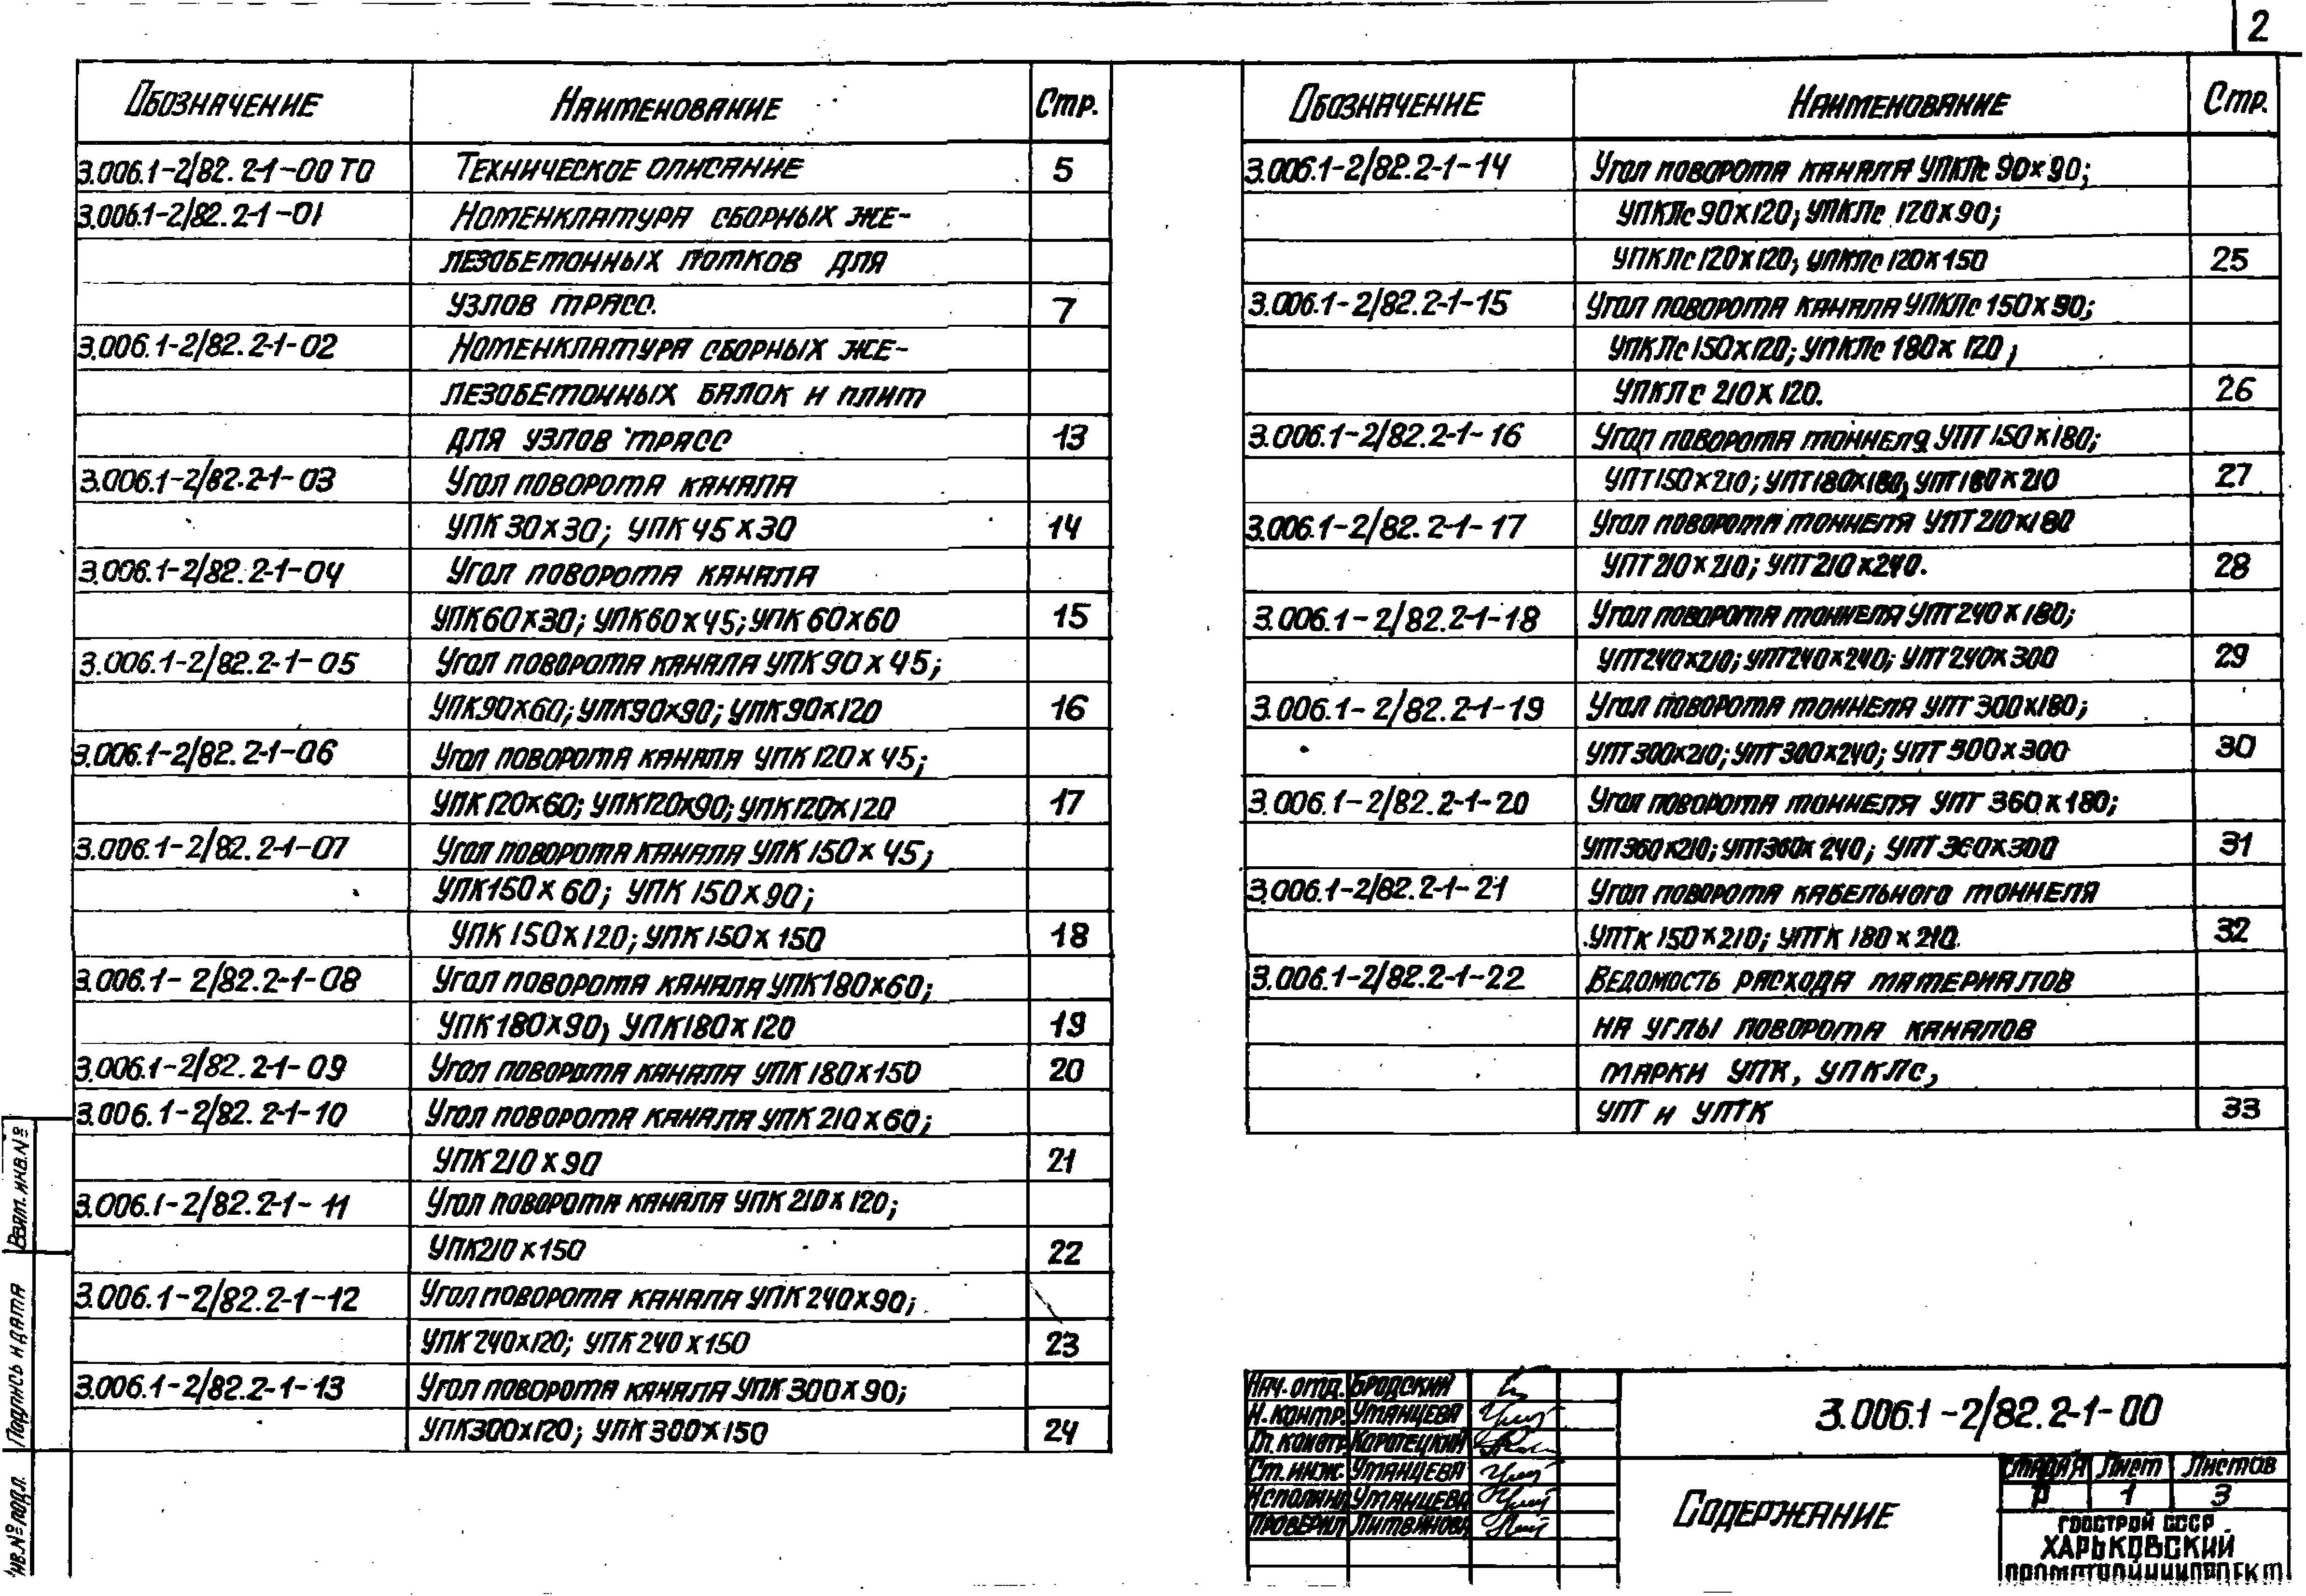 2
Обозначение Наименование Стр.
3.006.1-2/82.2-1-00 ТО Техническое описание 5
3.006.1-2/82.2-1-01 Номенклатура сборных же-
лезобетонных лотков для
узлов трасс. 7
3.006.1-2/82.2-1-02 Номенклатура сборных же-
лезобетонных балок и плит
для узлов трасс 13
3.006.1-2/82.2-1-03 Угол поворота канала
УПК 30х30; УПК 45х30 14
3.006.1-2/82.2-1-04 Угол поворота канала
УПК60х30; УПК60х45; УПК 60х60 15
3.006.1-2/82.2-1-05 Угол поворота канала УПК 90х45;
УПК90х60; УПК90х90; УПК90х120 16
3.006.1-2/82.2-1-06 Угол поворота канала УПК 120х45;
УПК120х60; УПК120х90; УПК120х120 17
3.006.1-2/82.2-1-07 Угол поворота канала УПК 150х45;
УПК150х60; УПК 150х90;
УПК 150х120; УПК 150х150 18
3.006.1-2/82.2-1-08 Угол поворота канала УПК180х60;
УПК180х90; УПК180х120 19
3.006.1-2/82.2-1-09 Угол поворота канала УПК 180х150 20
3.006.1-2/82.2-1-10 Угол поворота канала УПК 210х60;
УПК210х90 21
3.006.1-2/82.2-1-11 Угол поворота канала УПК 210х120;
УПК210х150 22
3.006.1-2/82.2-1-12 Угол поворота канала УПК 240х90;
УПК 240х120; УПК 240х150 23
3.006.1-2/82.2-1-13 Угол поворота канала УПК 300х90;
УПК300х120; УПК 300х150 24
Обозначение Наименование Стр.
3.006.1-2/82.2-1-14 Угол поворота канала УПКЛс 90х90;
УПКЛс 90х120; УПКЛс 120х90;
УПКЛс 120х120; УПКЛс 120х150 25
3.006.1-2/82.2-1-15 Угол поворота канала УПКЛс 150х90;
УПКЛс 150х120; УПКЛс 180х120;
УПКЛс 210х120. 26
3.006.1-2/82.2-1-16 Угол поворота тоннеля УПТ 150х180;
УПТ150х210; УПТ180х180, УПТ180х210 27
3.006.1-2/82.2-1-17 Угол поворота тоннеля УПТ210х180
УПТ210х210; УПТ210х240. 28
3.006.1-2/82.2-1-18 Угол поворота тоннеля УПТ240х180;
УПТ240х210; УПТ240х240; УПТ240х300 29
3.006.1-2/82.2-1-19 Угол поворота тоннеля УПТ 300х180;
УПТ300х210; УПТ300х240; УПТ300х300 30
3.006.1-2/82.2-1-20 Угол поворота тоннеля УПТ 360х180;
УПТ360х210; УПТ360х240; УПТ360х300 31
3.006.1-2/82.2-1-21 Угол поворота кабельного тоннеля
УПТк 150х210; УПТК 180х210. 32
3.006.1-2/82.2-1-22 Ведомость расхода материалов
на углы поворота каналов
марки УПК, УПКЛс,
УПТ и УПТК 33
Взам. инв. №
Подпись и дата
Инв. № подл.
Нач. отд. Бродский
Н. контр. Уманцева
Гл. констр. Коротецкий
Ст. инж. Уманцева
Исполнил Уманцева
Проверил Литвинова
3.006.1-2/82.2-1-00
Содержание
Стадия Лист Листов
Р 1 3
Госстрой СССР
Харьковский
Промстройниипроект